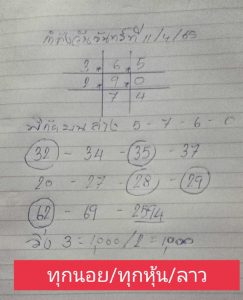 วันจันทร์ที่ 11/4/65
3 . 6 . 5
2 . 9 . 0
7 4
บน ล่าง 5 - 7 - 6 - 0
32 - 34 - 35 - 37
20 - 27 - 28 - 29
62 - 69 - 2594
วิ่ง 3 = 1,000 / 2 = 1,000
ทุกนอย/ทุกหุ้น/ลาว